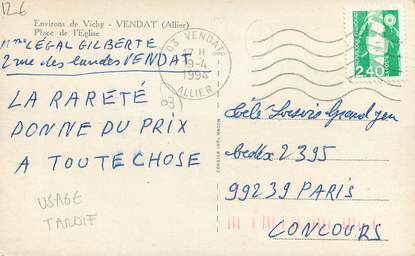 12.6
Environs de Vichy - VENDAT (Allier)
Place de l'Eglise
Mme LÉGAL GILBERTE
2 rue des landes VENDAT
LA RARETÉ
DONNE DU PRIX
A TOUTE CHOSE
USAGE
TARDIF
03 VENDAT
17 H
19-4
1994
ALLIER
03
COMBIER IMP. MACON
2,40
Télé Loisirs Grand jeu
Cedex 2395
99239 PARIS
CONCOURS